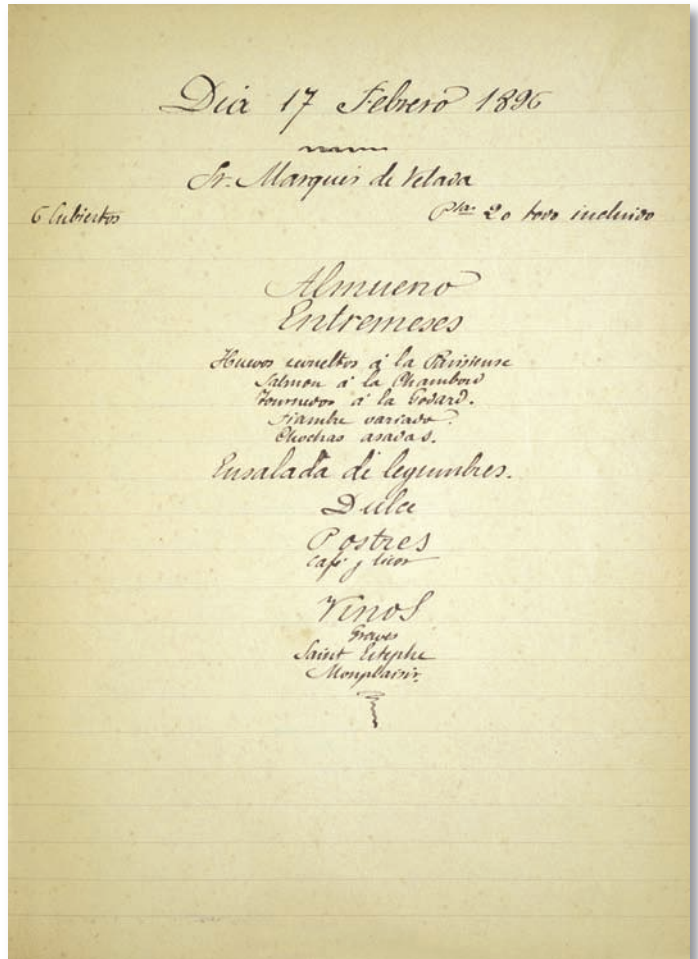 Dia 17 Febrero 1896
Sr. Marques de Velada
6 Cubiertos Ptas. 20 todo incluido
Almuerzo
Entremeses
Huevos revueltos á la Parisienne
Salmon á la Chambord
Tournedos á la Godard.
Fiambre variado.
Chochas asadas.
Ensalada de legumbres.
Dulce
Postres
Café y licor
Vinos
Graves
Saint Estephe
Monplaisir.